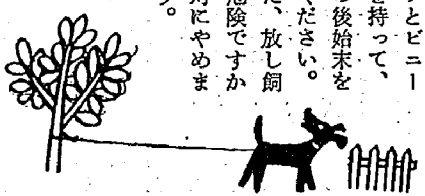 とビニー
を持って、
後始末を
ください。
た、放し飼
危険ですか
対にやめま
。